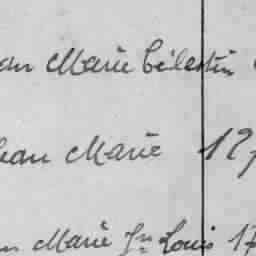 an Marie Célestin
Jean Marie 12
n Marie Jn Louis 17